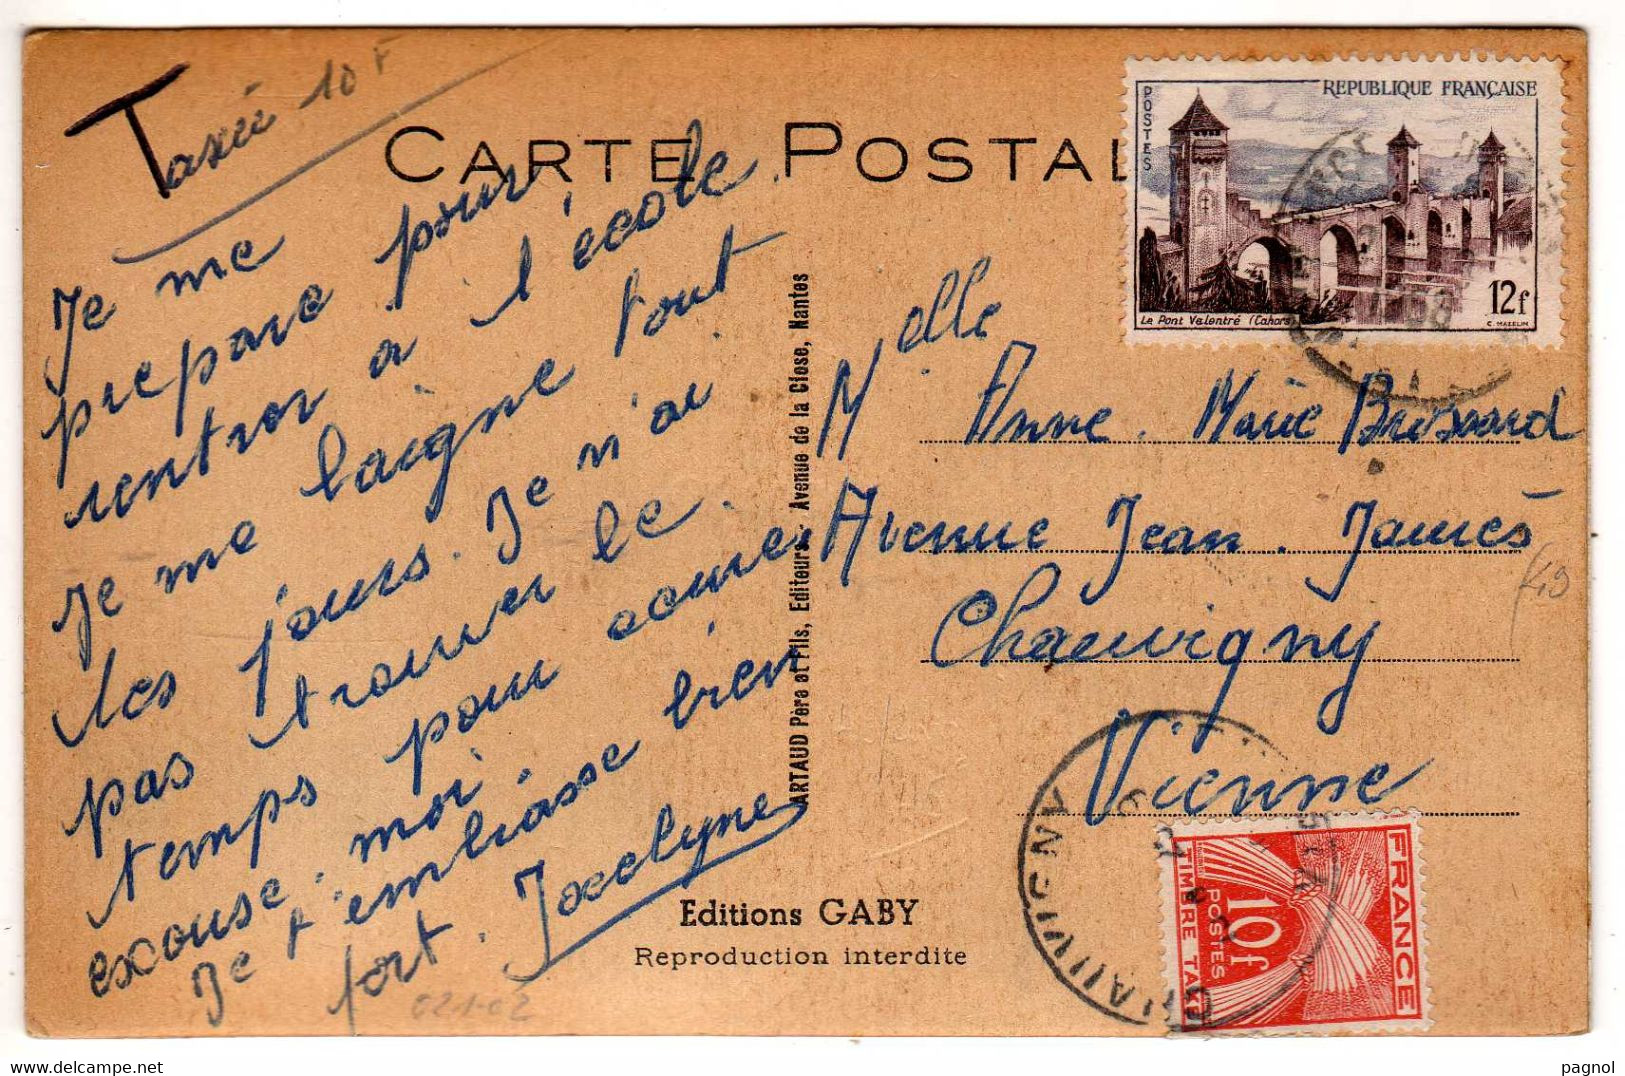 Taxée 10F
CARTE POSTAL
Je me
prepare pour
rentrer à l'école.
Je me baigne tout
les jours. Je n'ai
pas trouver le
temps pour ecrire
excuse. moi.
Je t'embrasse bien
fort. Jocelyne
021-02
ARTAUD Père et Fils, Editeurs - Avenue de la Close, Nantes
Editions GABY
Reproduction interdite
REPUBLIQUE FRANÇAISE
POSTES
12f
Le Pont Valentré (Cahors)
C. MAZELIN
Melle Anne. Marie Brossard
Avenue Jean. Jaurès
Chauvigny
Vienne
CHAUVIGNY
FRANCE
10f
POSTES
TIMBRE TAXE
pagnol